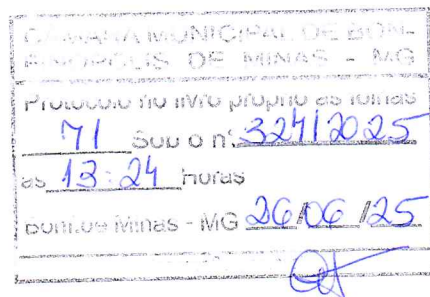 CÂMARA MUNICIPAL DE BON-
FINÓPOLIS DE MINAS - MG
Protocolo no livro próprio as folhas
71 Sob o nº 324/2025
as 13:24 Horas
Bonf. de Minas - MG 26/06/25